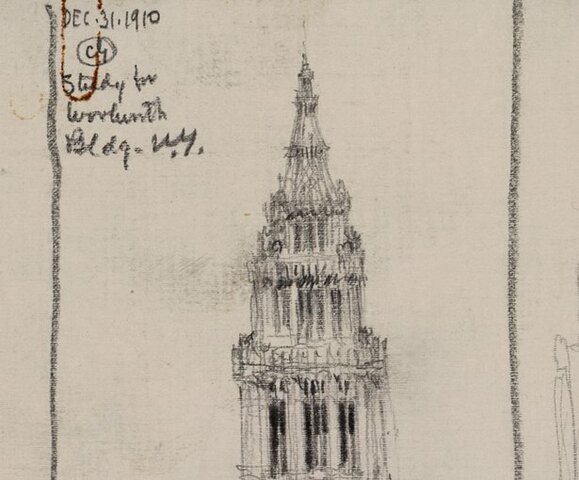 DEC. 31. 1910
CG
Study for
Woolworth
Bldg - N.Y.